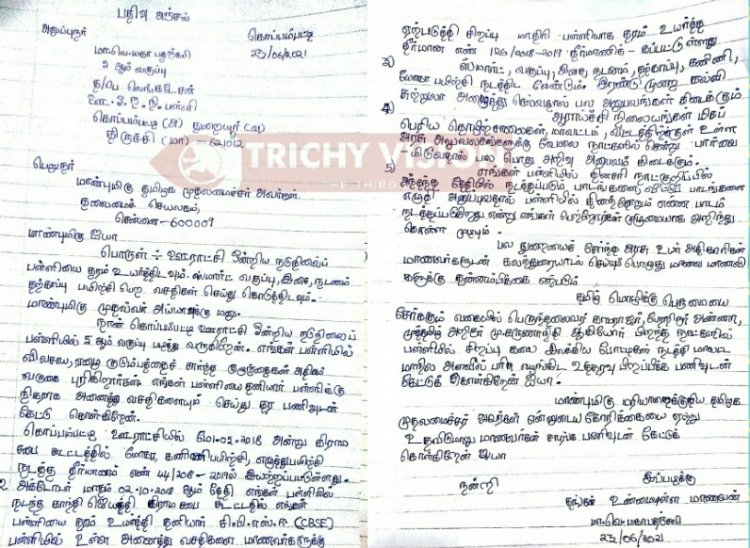 பதிவு அஞ்சல்
அனுப்புநர்
கொப்பம்பட்டி
23/06/2021
மா.வெ.
2 ஆம் வகுப்பு
த/பெ வெங்கடேசன்
ஊ. ஒ. ந. நி. பள்ளி
கொப்பம்பட்டி (அ) துறையூர் (வ)
திருச்சி (மா) 621012
பெறுநர்
மாண்புமிகு தமிழக முதலமைச்சர் அவர்கள்.
தலைமைச் செயலகம்,
சென்னை-600009
மாண்புமிகு ஐயா
பொருள் :- ஊராட்சி ஒன்றிய நடுநிலைப்
பள்ளியை தரம் உயர்த்திடவும். ஸ்மார்ட் வகுப்பு, இசை, நடனம்
தற்காப்பு பயிற்சி பெற வசதிகள் செய்து கொடுத்திடவும்.
மாண்புமிகு முதல்வர் அய்யாவுக்கு மனு.
நான் கொப்பம்பட்டி ஊராட்சி ஒன்றிய நடுநிலைப்
பள்ளியில் 5 ஆம் வகுப்பு படித்து வருகிறேன். எங்கள் பள்ளியில்
விவசாய, ஏழை குடும்பத்தைச் சார்ந்த குழந்தைகள் அதிகம்
வருகை புரிகிறார்கள். எங்கள் பள்ளியை தனியார் பள்ளிக்கு
நிகராக அனைத்து வசதிகளையும் செய்து தர பணிவுடன்
கேட்டு கொள்கிறேன்.
கொப்பம்பட்டி ஊராட்சியில் 01-02-2018 அன்று கிராம
சபை கூட்டத்தில் யோகா, கணினிபயிற்சி, எழுத்துபயிற்சி
நடத்த தீர்மானம் எண் 44/2018-2019ல் இயற்றப்பட்டுள்ளது.
2. அக்டோபர் மாதம் 02.10.2018 ஆம் தேதி எங்கள் பள்ளியில்
நடந்த காந்தி ஜெயந்தி கிராம சபை கூட்டத்தில் எங்கள்
பள்ளியை தரம் உயர்த்தி தனியார் சி.பி.எஸ்.ஈ (CBSE)
பள்ளியில் உள்ள அனைத்து வசதிகளை மாணவர்களுக்கு
ஏற்படுத்தி சிறப்பு மாதிரி பள்ளியாக தரம் உயர்த்த
தீர்மான எண் 126/2018-2019 தீர்மானிக்கப்பட்டு உள்ளது
3) ஸ்மார்ட், வகுப்பு, இசை நடனம், தற்காப்பு, கணினி,
யோகா பயிற்சி நடத்திட வேண்டும். இரண்டு முறை கல்வி
சுற்றுலா அழைத்து செல்வதால் பல அனுபவங்கள் கிடைக்கும்
4) ஆராய்ச்சி நிலையங்கள் மிகப்
பெரிய தொழிற்சாலைகள், மாவட்டம், வட்டத்திற்குள் உள்ள
அரசு அலுவலகங்களுக்கு வேலை நாட்களில் சென்று பார்வை
யிடுவதால் பல பொது அறிவு அனுபவம் கிடைக்கும்.
5) எங்கள் பள்ளியில் தினசரி நாட்குறிப்பில்
அந்தந்த தேதியில் நடத்தப்படும் பாடங்களை, வீட்டுப் பாடங்களை
எழுதி அனுப்புவதால் பள்ளியில் தினந்தோறும் என்ன பாடம்
நடத்தப்படுகிறது என்று எங்கள் பெற்றோர்கள் முழுமையாக அறிந்து
கொள்ள முடியும்.
பல துறையைச் சேர்ந்த அரசு உயர் அதிகாரிகள்
மாணவர்களுடன் கலந்துரையாடல் செய்யும் பொழுது மாணவ மாணவி
களுக்கு தன்னம்பிக்கை ஏற்படும்
தமிழ் மொழிக்கு பெருமையை
சேர்க்கும் வகையில் பெருந்தலைவர் காமராஜர், பேரறிஞர் அண்ணா,
முத்தமிழ் அறிஞர் மு.கருணாநிதி ஆகியோர் பிறந்த நாட்களில்
பள்ளியில் சிறப்பு கலை இலக்கிய போட்டிகள் நடத்தி மாவட்ட
மாநில அளவில் பரிசு வழங்கிட உத்தரவு பிறப்பிக்க பணிவுடன்
கேட்டுக் கொள்கிறேன் ஐயா.
மாண்புமிகு மரியாதைக்குரிய தமிழக
முதலமைச்சர் அவர்கள் என்னுடைய கோரிக்கையை ஏற்று
உதவிடுமாறு மாணவர்கள் சார்பாக பணிவுடன் கேட்டுக்
கொள்கிறேன் ஐயா
நன்றி
இப்படிக்கு
தங்கள் உண்மையுள்ள மாணவன்
மா.வெ.
23/06/2021
TRICHY VISION
THE THIRD